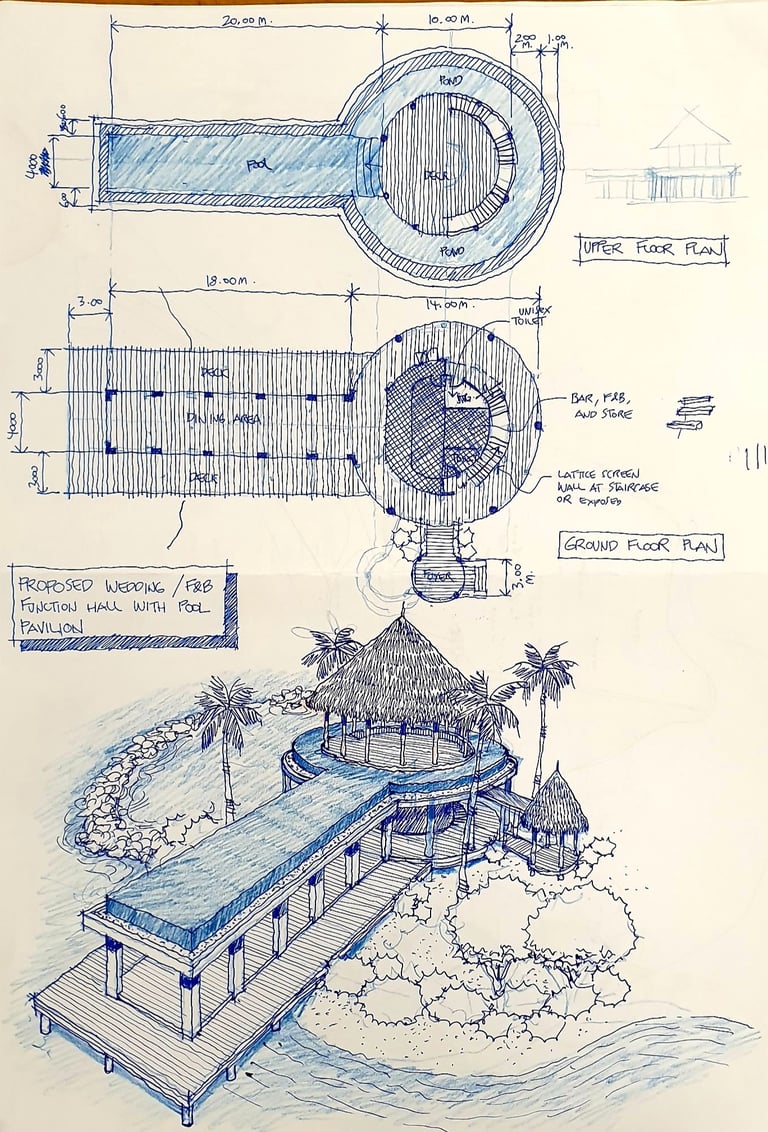 20.00 M.
10.00 M.
2.00 M.
1.00 M.
POND
4000
600
POOL
DECK
POND
UPPER FLOOR PLAN
18.00 M.
3.00
14.00 M.
UNISEX
TOILET
3000
DECK
DINING AREA
4000
DECK
BAR, F&B,
AND STORE
LATTICE SCREEN
WALL AT STAIRCASE
OR EXPOSED
GROUND FLOOR PLAN
FOYER
3.00 M.
PROPOSED WEDDING / F&B
FUNCTION HALL WITH POOL
PAVILION